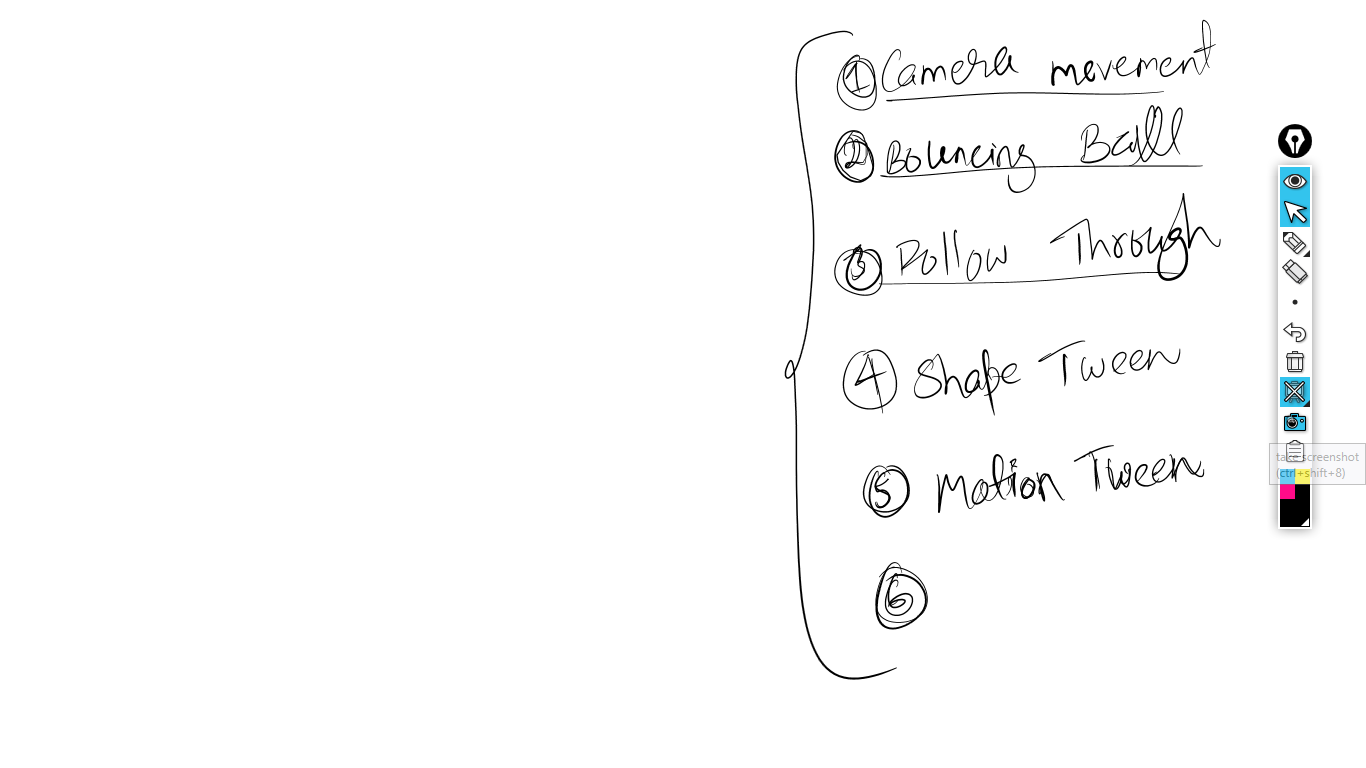 1 Camera movement
2 Bouncing Ball
3 Follow Through
4 Shape Tween
5 Motion Tween
6
take screenshot
(ctrl+shift+8)